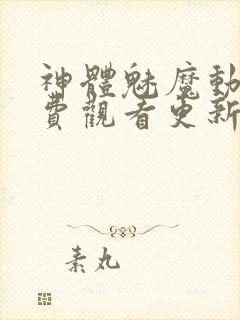 神體魅魔動
費觀看更新
素丸